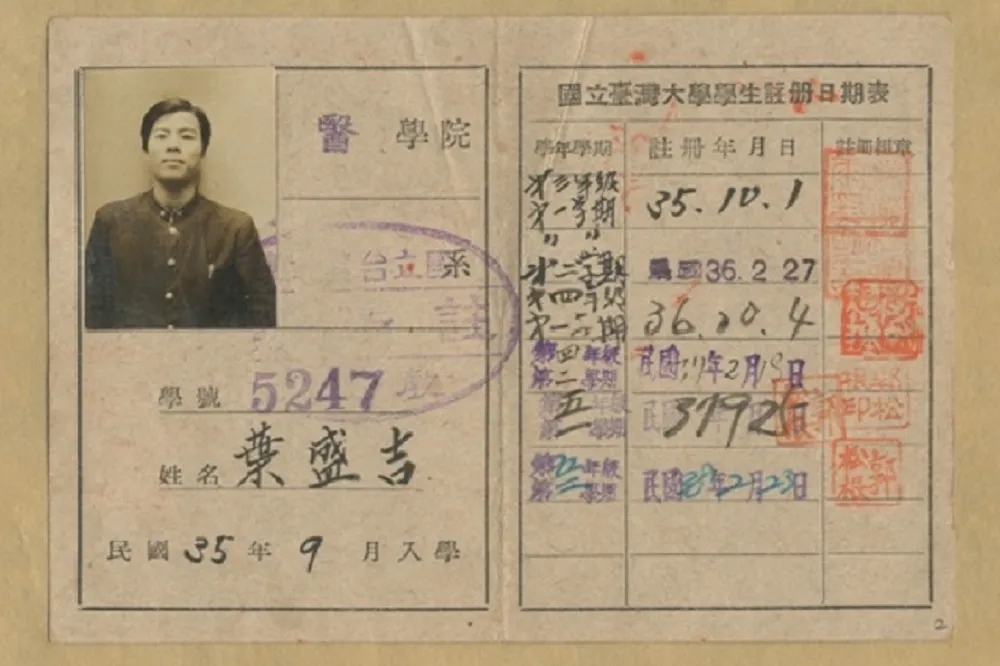 醫 學院
系
國立台
註
教
學號 5247
姓名 葉盛吉
民國 35 年 9 月入學
國立臺灣大學學生註册日期表
學年學期 註册年月日 註册組章
第三年級
第一學期 35.10.1
〃 〃
第二学期 民國36.2 27
第四年級
第一学期 36.10.4
第四年級
第二學期 民國 年2月19日
第五年級
第 學期 民國 日
第 年級
第二學期 民國38年2月23日
2